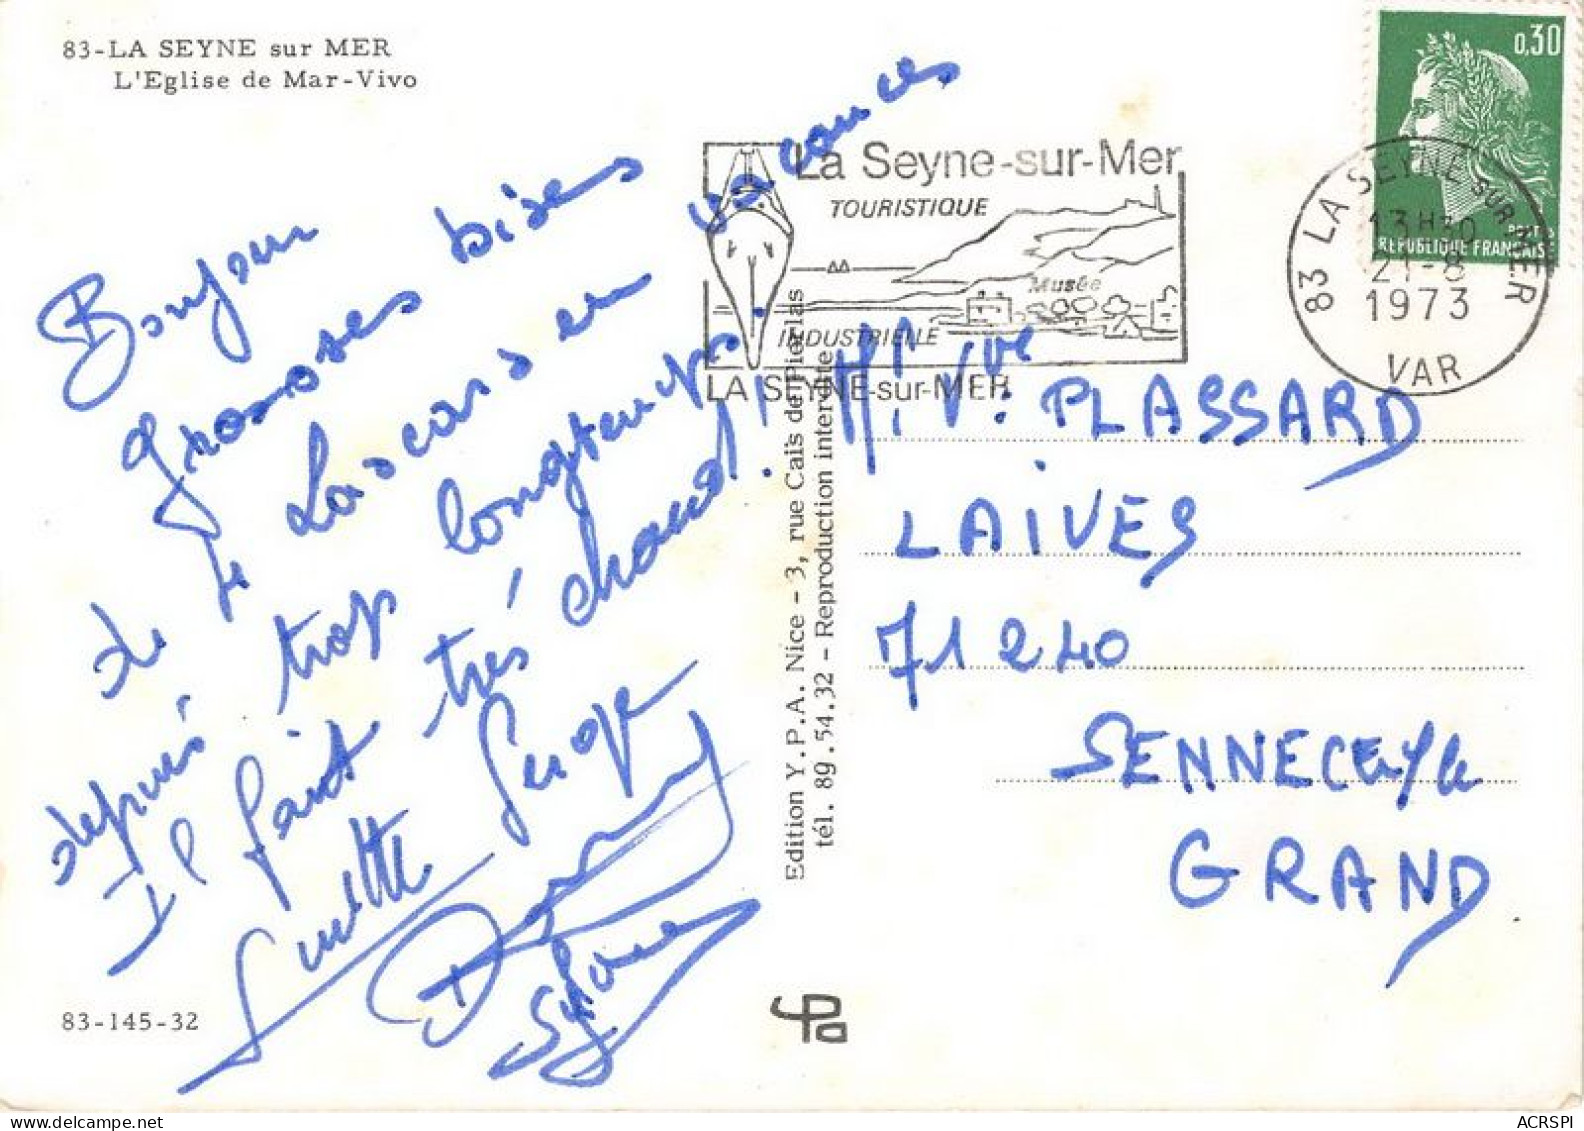 83-LA SEYNE sur MER
L'Eglise de Mar-Vivo
Bonjour
Grosses bises
de 4 Lascars en vacances
depuis trop longtemps.
Il fait très chaud!!
Ginette Serge
Sylvie
83-145-32
Edition Y.P.A. Nice - 3, rue Caïs de Pierlas
tél. 89.54.32 - Reproduction interdite
La Seyne-sur-Mer
TOURISTIQUE
Musée
INDUSTRIELLE
LA SEYNE-sur-MER
0,30
POSTES
REPUBLIQUE FRANÇAISE
83 LA SEYNE SUR MER
13H30
21-8
1973
VAR
Mme Vve PLASSARD
LAIVES
71240
SENNECEY le
GRAND
ACRSPI